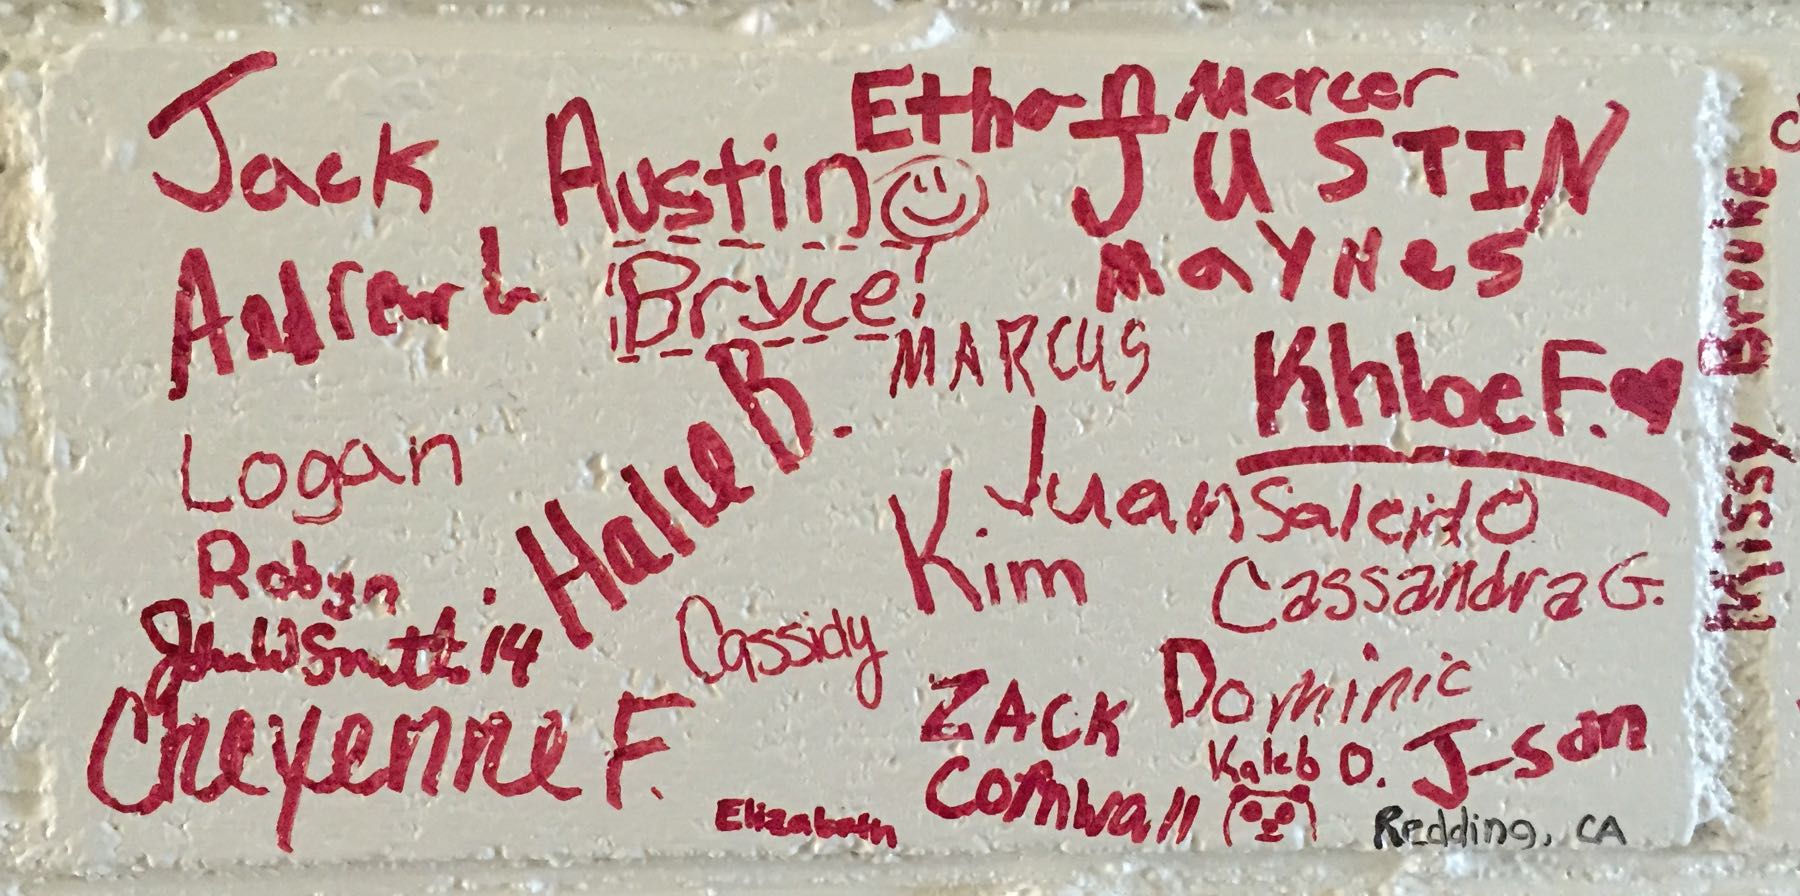 Jack
Austin
Ethan Mercer
JUSTIN
MAYNES
Andrew L
Bryce
MARCUS
Khloe F.
Logan
Halie B.
Juan Salcido
Kim
Cassandra G.
Robyn
John W Smith 14
Cassidy
Cheyenne F.
ZACK
Cornwall
Dominic
Kaleb O.
J-son
Elizabeth
Redding, CA
Missy Brooke